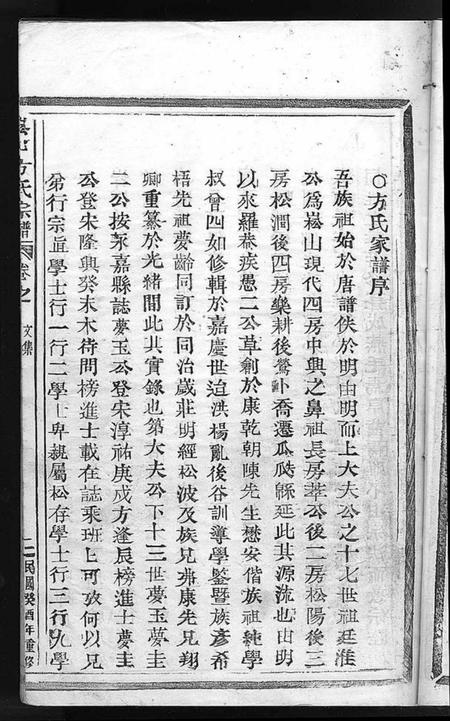 ○方氏家譜序
吾族祖始於唐譜佚於明由明而上大夫公之十七世祖廷淮
公爲崧山現代四房中興之鼻祖長房萃公後二房松陽後三
房松澗後四房樂耕後鶯卟喬遷瓜瓞緜延此其源流也由明
以來羅恭疾愚二公草創於康乾朝陳先生懋安偕族祖純學
叔曾四如修輯於嘉慶世迨洪楊亂後谷訓導學鑒暨族彥希
梧先祖夢齡同訂於同治歲莊明經松波及族兄弗康先兄翔
卿重纂於光緒間此其實錄也第大夫公下十三世夢玉夢圭
二公按永嘉縣誌夢玉公登宋淳祐庚戌方逢辰榜進士夢圭
公登宋隆興癸未木待問榜進士載在誌乘班班可攷何以兄
弟行宗亙學士行一行二學士卑親屬松存學士行三行九學
方氏宗譜 卷之 文集
二 民國癸酉年重修